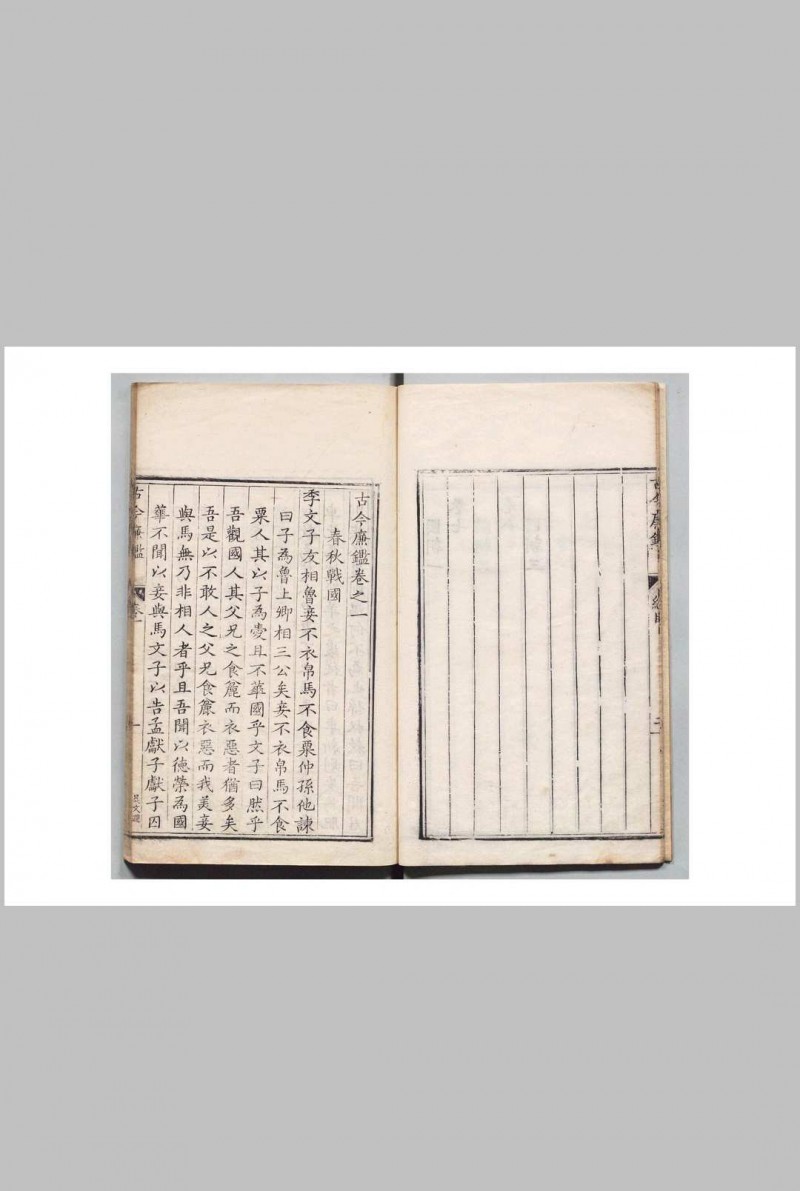 古今廉鑑卷之一
春秋戰國
季文子友相魯妾不衣帛馬不食粟仲孫他諫
曰子為魯上卿相三公矣妾不衣帛馬不食
粟人其以子為愛且不華國乎文子曰然乎
吾觀國人其父兄之食麄而衣惡者猶多矣
吾是以不敢人之父兄食麄衣惡而我美妾
與馬無乃非相人者乎且吾聞以德榮為國
華不聞以妾與馬文子以告孟獻子獻子囚
古今廉鑑
卷一
一
古今廉鑑